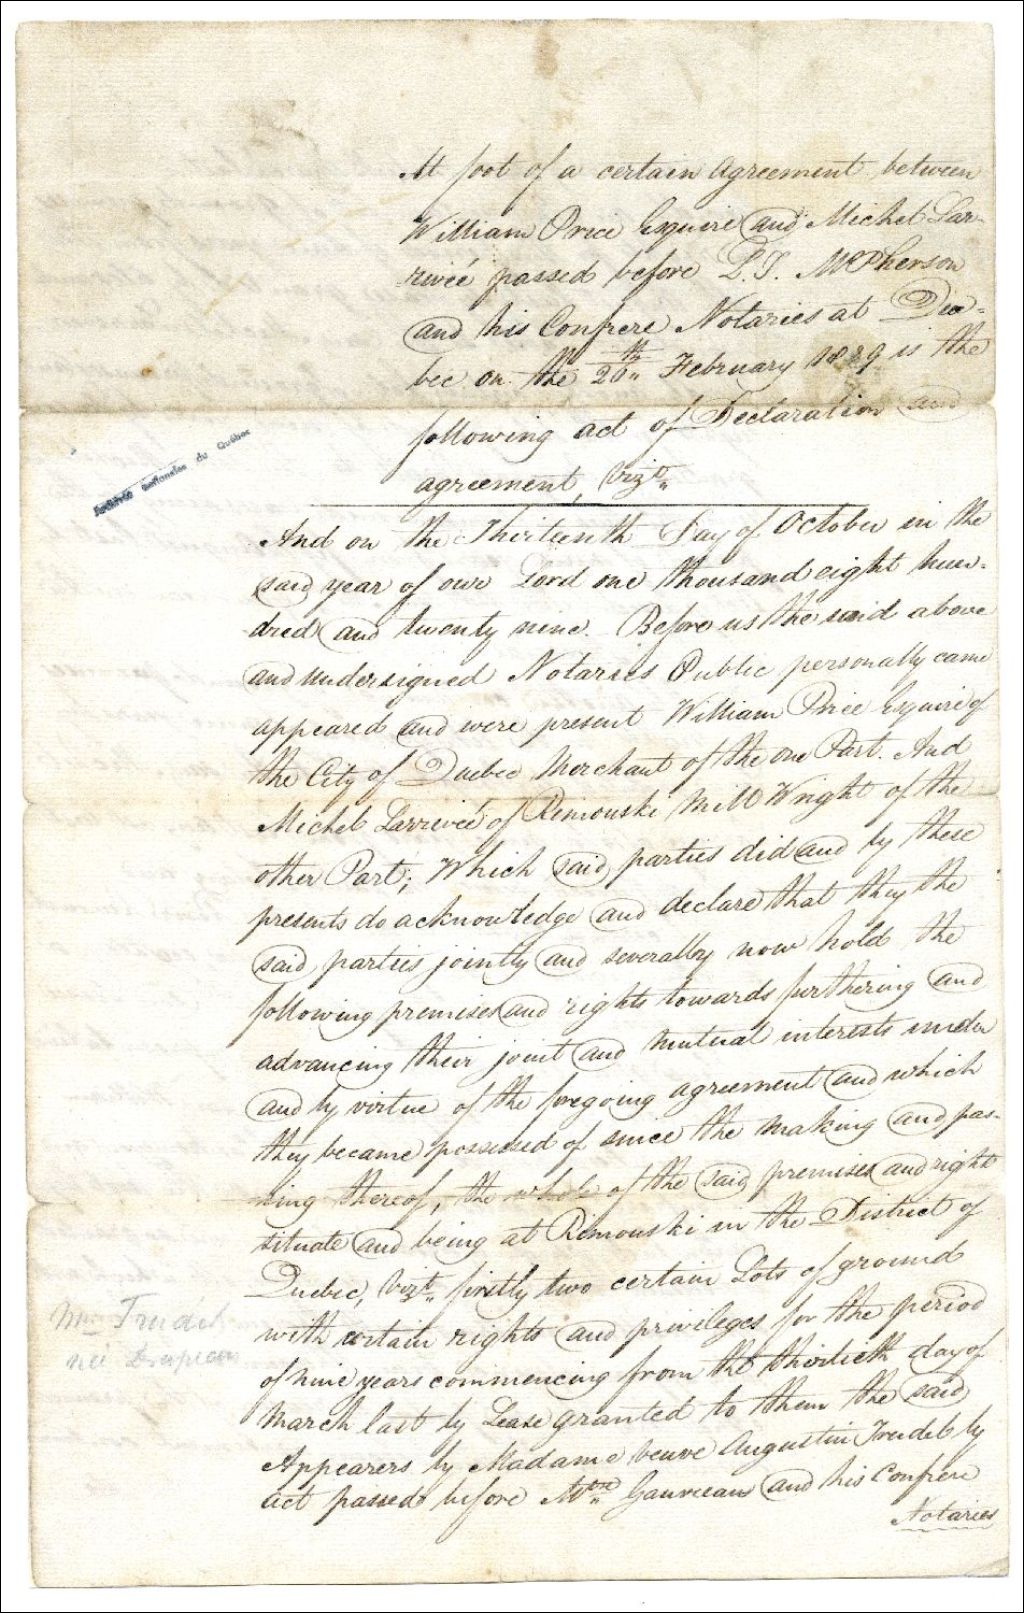 At foot of a certain Agreement between
William Price Esquire and Michel Lar-
rivée passed before L.T. McPherson
and his Confrere Notaries at Que-
bec on the 20th February 1829 is the
following act of Declaration and
agreement, Vizt.
Archives nationales du Québec
And on the Thirteenth Day of October in the
said year of our Lord one thousand eight hun-
dred and twenty nine. Before us the said above
and undersigned Notaries Public personally came
appeared and were present William Price Esquire of
the City of Quebec Merchant of the one Part. And
Michel Larrivée of Rimouski Mill Wright of the
other Part; Which said parties did and by these
presents do acknowledge and declare that they the
said parties jointly and severally now hold the
following premises and rights towards furthering and
advancing their joint and mutual interests under
and by virtue of the foregoing agreement and which
they became possessed of since the making and pas-
sing thereof, the whole of the said premises and rights
situate and being at Rimouski in the District of
Quebec, Vizt. firstly two certain Lots of ground
with certain rights and privileges for the period
of nine years commencing from the thirtieth day of
March last by Lease granted to them the said
Appearers by Madame veuve Augustin Trudel by
act passed before Mtre Gauvreau and his Confrere
Notaries
Mme Trudel
née Drapeau